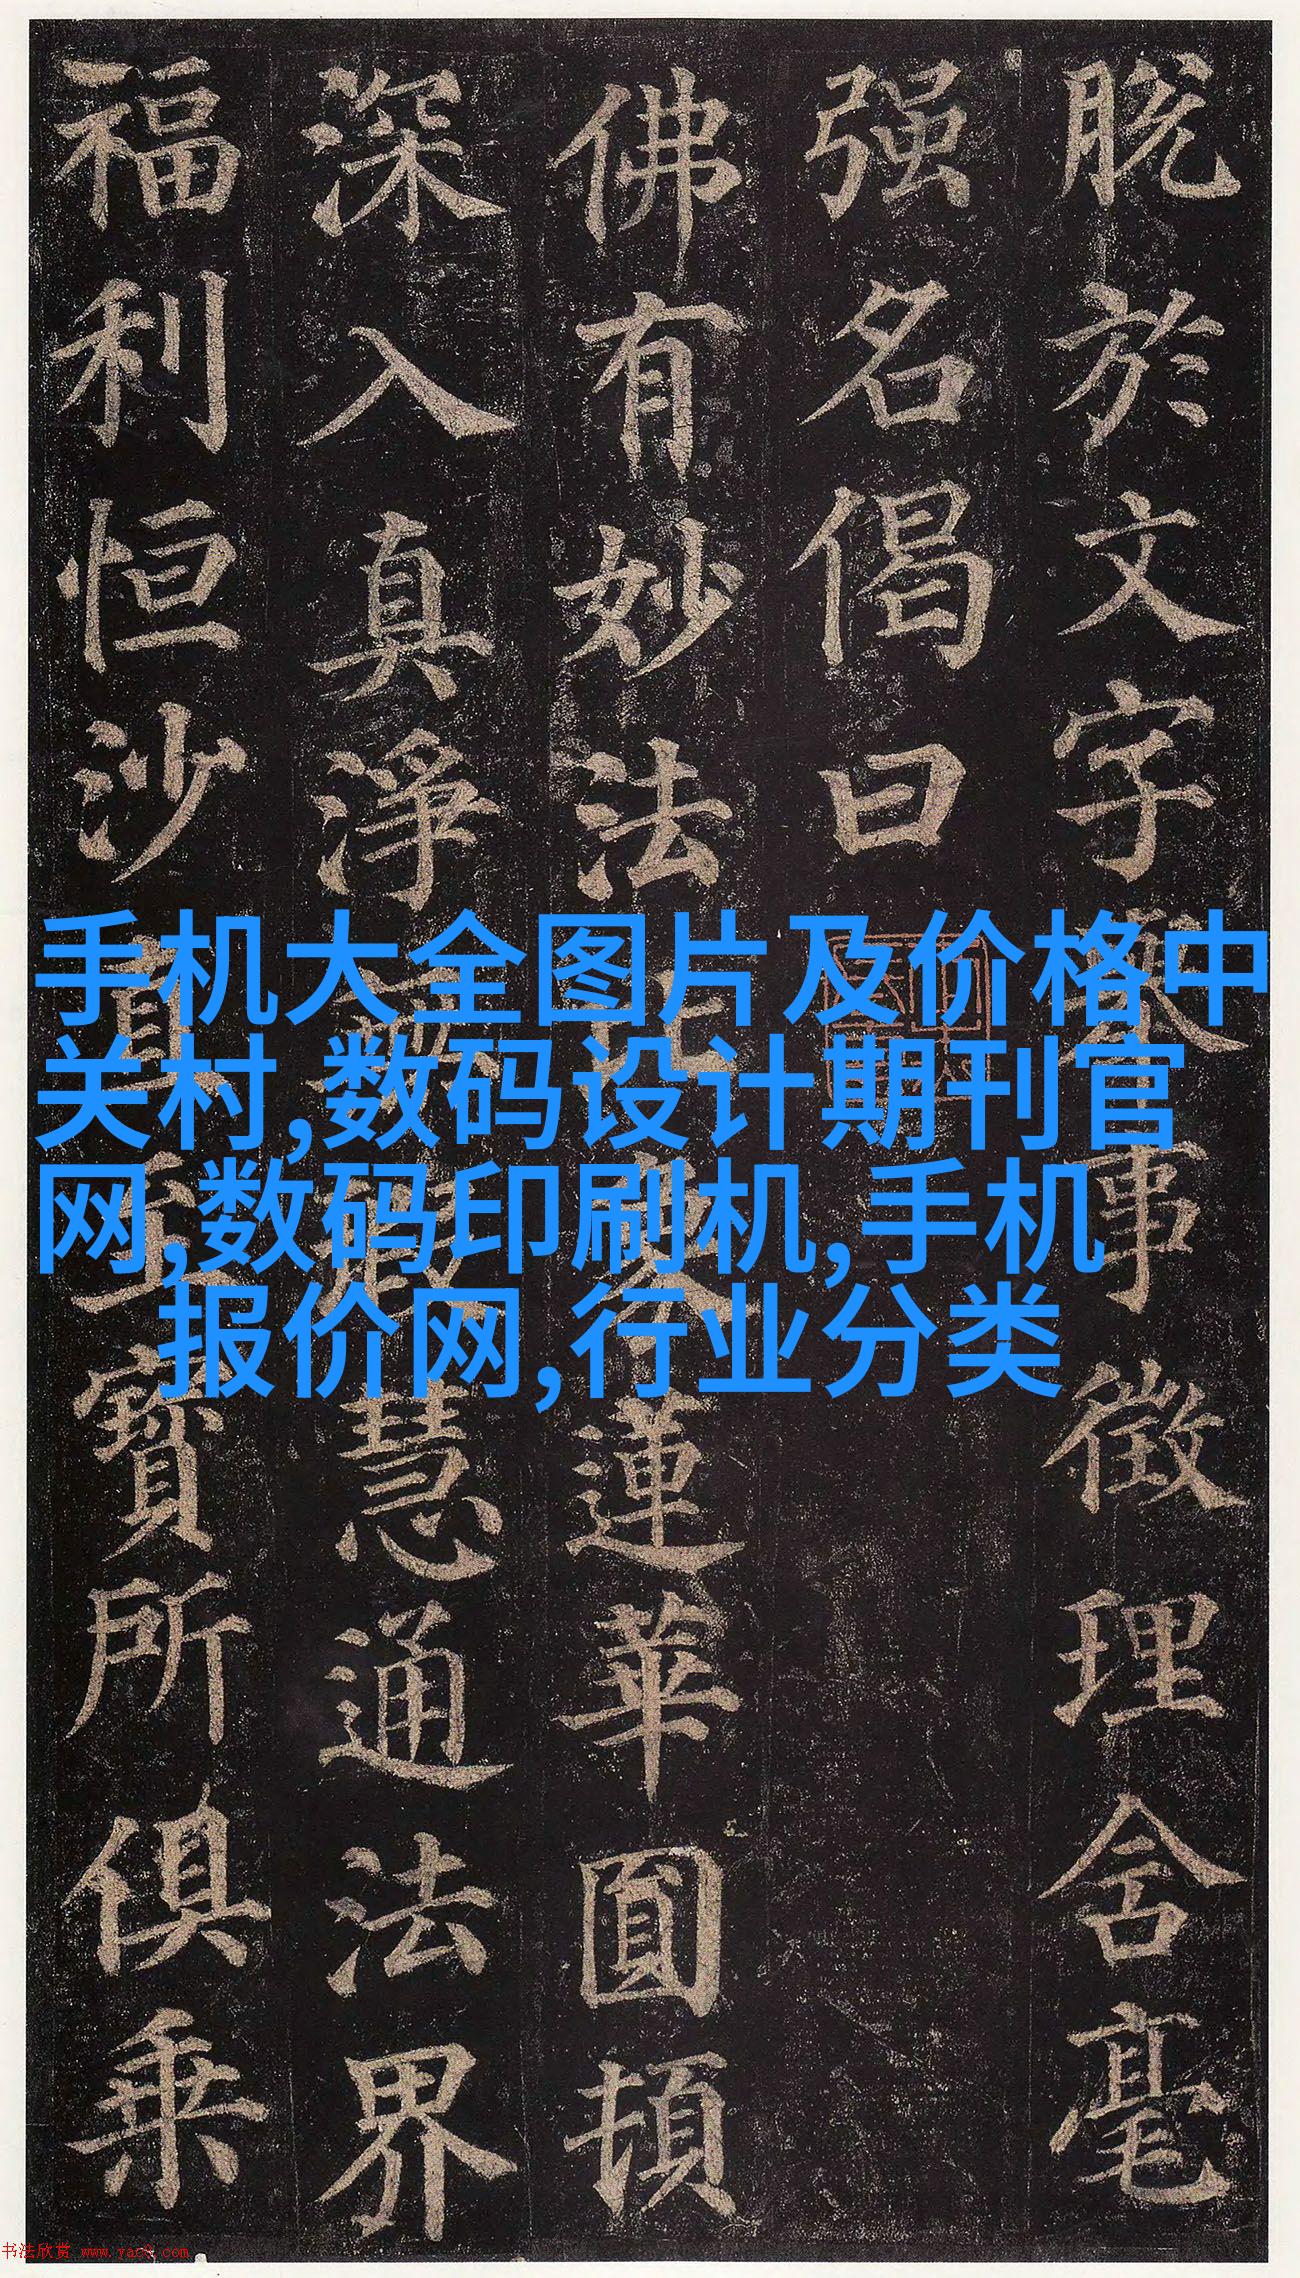 脱於文字事徵理含毫
强名偈曰
佛有妙法蓮華圓頓
深入真淨慧通法界
福利恒沙直至寶所俱乗
手机大全图片及价格中
关村,数码设计期刊官
网,数码印刷机,手机
报价网,行业分类
书法欣赏 www.yac8.com